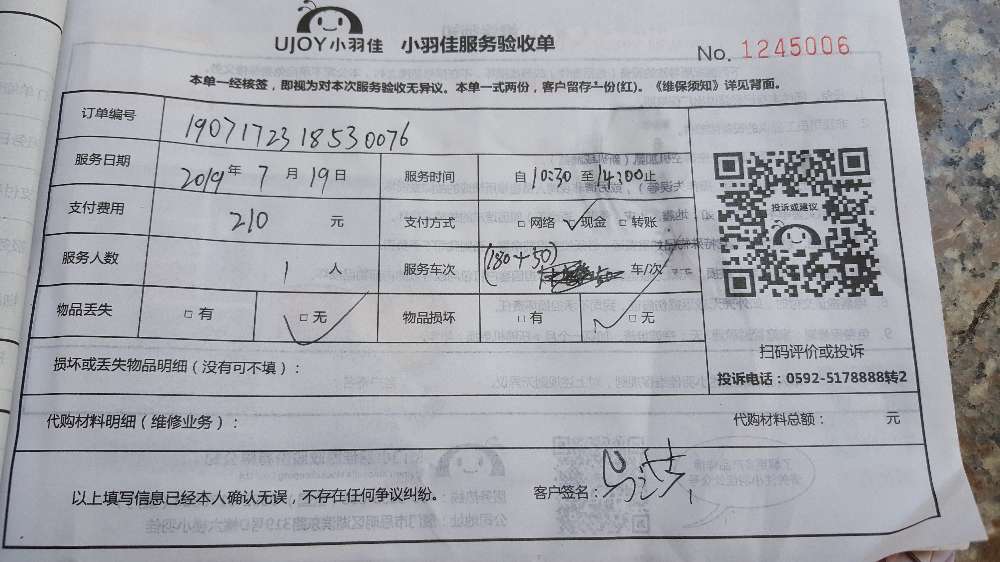 UJOY小羽佳 小羽佳服务验收单
No. 1245006
本单一经核签，即视为对本次服务验收无异议。本单一式两份，客户留存一份(红)。《维保须知》详见背面。
订单编号 1907172318530076
服务日期 2019年 7月 19日 服务时间 自10:30至14:00止
支付费用 210 元 支付方式 □网络 ✓现金 □转账
服务人数 1 人 服务车次 (180+50) 车/次
物品丢失 □有 ✓无 物品损坏 □有 ✓□无
投诉或建议
扫码评价或投诉
投诉电话：0592-5178888转2
损坏或丢失物品明细（没有可不填）：
代购材料明细（维修业务）： 代购材料总额： 元
以上填写信息已经本人确认无误，不存在任何争议纠纷。 客户签名：